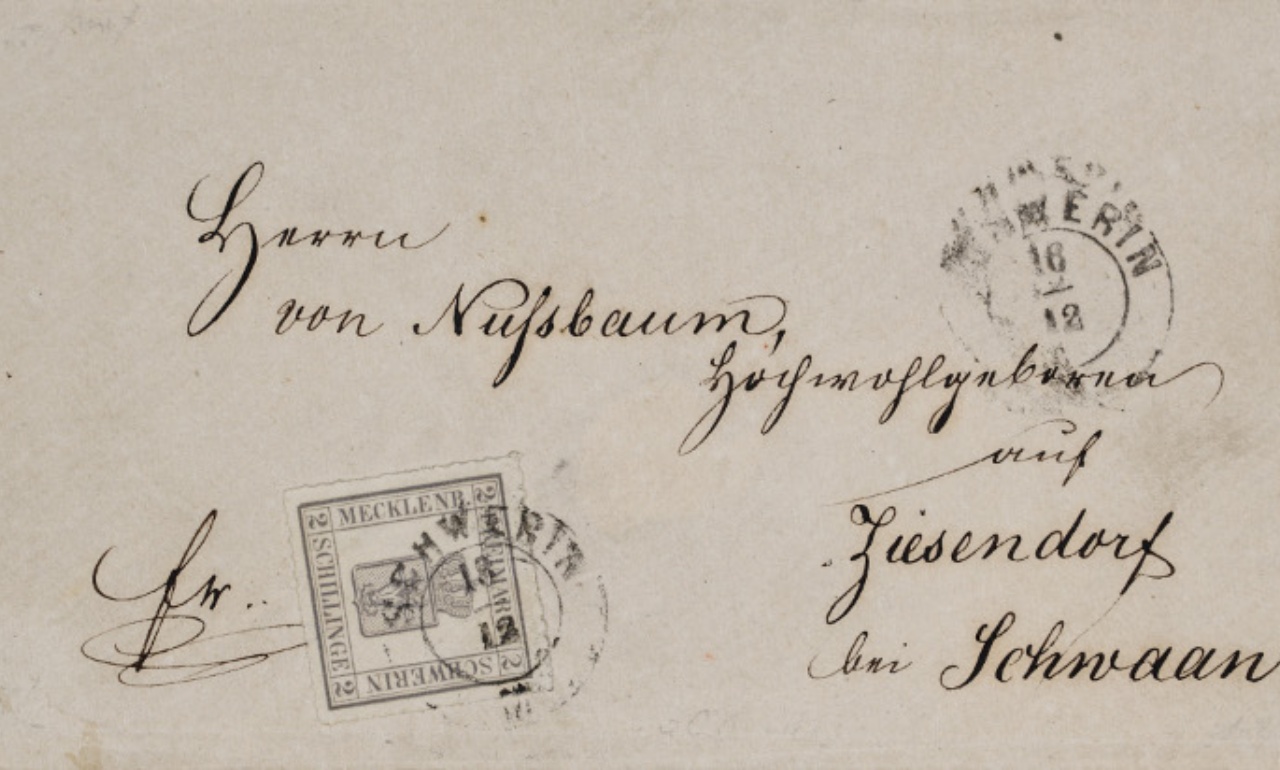 Herrn
von Nußbaum,
Hochwohlgeboren
auf
Ziesendorf
bei Schwaan
Fr.
SCHWERIN
16
12
MECKLENB.
SCHILLINGE
SCHWERIN
FREIMARKE
2
2
2
2
HWERIN
12